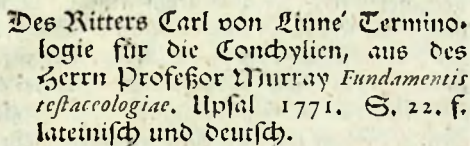 Des Ritters Carl von Linné Termino-
logie für die Conchylien, aus des
Herrn Profeßor Murray Fundamentis
testaceologiae. Upsal 1771. S. 22. f.
lateinisch und deutsch.